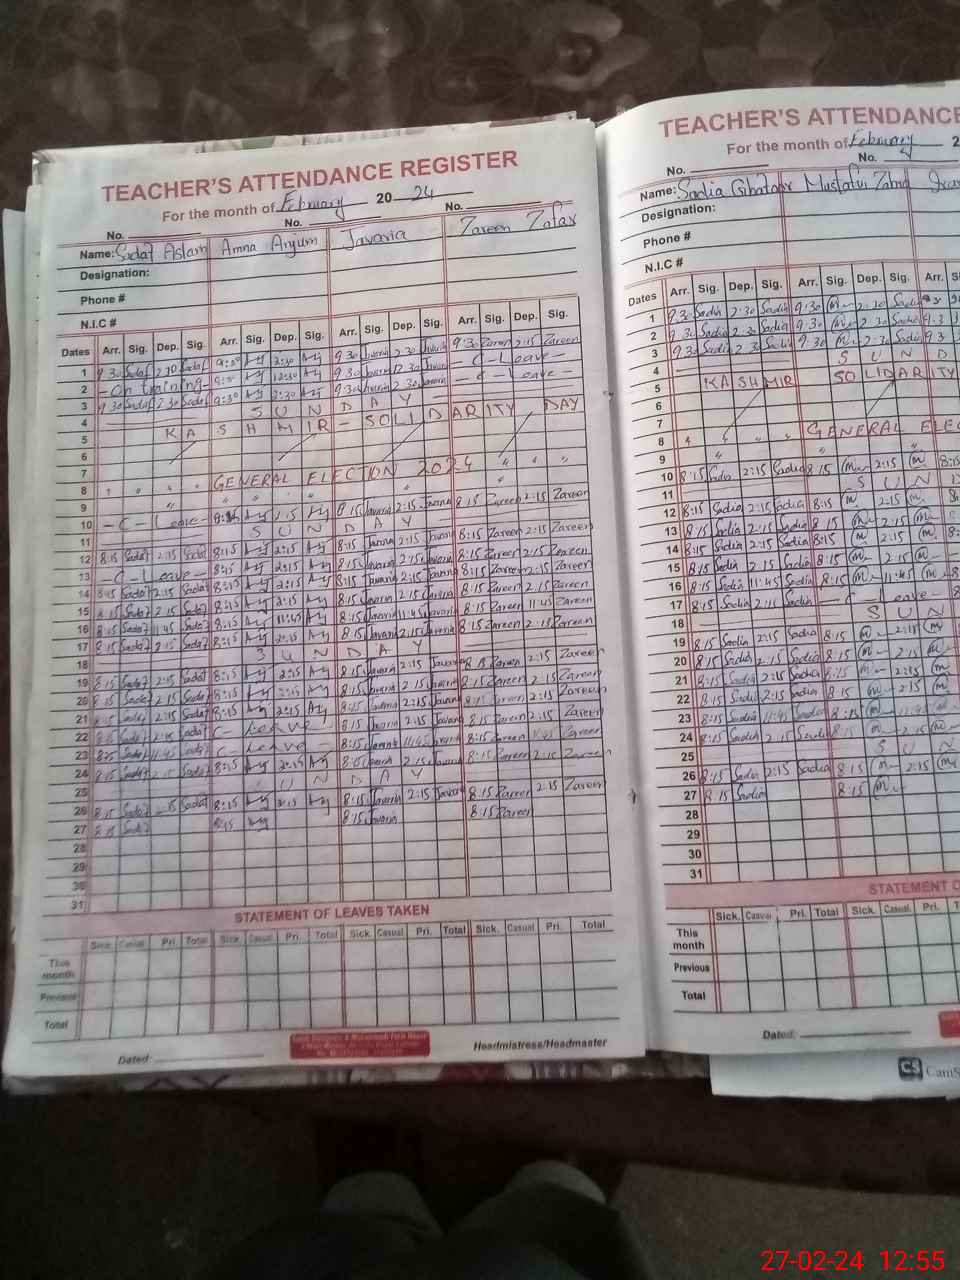 TEACHER'S ATTENDANCE REGISTER
For the month of February 2024
No. No. No.
Name: Sadaf Aslam Amna Anjum Javaria Zareen Zafar
Designation:
Phone #
N.I.C #
Dates Arr. Sig. Dep. Sig. Arr. Sig. Dep. Sig. Arr. Sig. Dep. Sig. Arr. Sig. Dep. Sig.
1 9 30 Sadaf 2 30 Sadaf 9:30 Aj 2:30 Aj 9 30 Javaria 2 30 Javaria 9 30 Zareen 2:15 Zareen
2 - On training - 9:30 Aj 12:30 Aj 9 30 Javaria 12 30 Javaria - C - Leave -
3 9 30 Sadaf 2 30 Sadaf 9:30 Aj 2:30 Aj 9 30 Javaria 2 30 Javaria - C - Leave -
4 S U N D A Y
5 KA S H MIR - SOLIDARITY DAY
6
7
8 " " " " GENERAL ELECTION 2024 " " "
9 " " " " "
10 - C - Leave - 8:15 Aj 2:15 Aj 8 15 Javaria 2:15 Javaria 8 15 Zareen 2:15 Zareen
11 S U N D A Y
12 8:15 Sadaf 2:15 Sadaf 8:15 Aj 2:15 Aj 8:15 Javaria 2:15 Javaria 8:15 Zareen 2:15 Zareen
13 - C - Leave - 8:15 Aj 2:15 Aj 8:15 Javaria 2:15 Javaria 8:15 Zareen 2:15 Zareen
14 8:15 Sadaf 2:15 Sadaf 8:15 Aj 2:15 Aj 8:15 Javaria 2:15 Javaria 8:15 Zareen 2:15 Zareen
15 8:15 Sadaf 2:15 Sadaf 8:15 Aj 2:15 Aj 8:15 Javaria 2:15 Javaria 8:15 Zareen 2:15 Zareen
16 8:15 Sadaf 11:45 Sadaf 8:15 Aj 11:45 Aj 8:15 Javaria 11:45 Javaria 8:15 Zareen 11:45 Zareen
17 8:15 Sadaf 2:15 Sadaf 8:15 Aj 2:15 Aj 8 15 Javaria 2:15 Javaria 8:15 Zareen 2:15 Zareen
18 S U N D A Y
19 8:15 Sadaf 2:15 Sadaf 8:15 Aj 2:15 Aj 8:15 Javaria 2:15 Javaria 8 15 Zareen 2:15 Zareen
20 8:15 Sadaf 2:15 Sadaf 8:15 Aj 2:15 Aj 8:15 Javaria 2:15 Javaria 8:15 Zareen 2:15 Zareen
21 8:15 Sadaf 2:15 Sadaf 8:15 Aj 2:15 Aj 8:15 Javaria 2:15 Javaria 8:15 Zareen 2:15 Zareen
22 8:15 Sadaf 2:15 Sadaf C - Leave - 8:15 Javaria 2:15 Javaria 8:15 Zareen 2:15 Zareen
23 8:15 Sadaf 11:45 Sadaf C - Leave - 8:15 Javaria 11:45 Javaria 8:15 Zareen 11:45 Zareen
24 8:15 Sadaf 2:15 Sadaf 8:15 Aj 2:15 Aj 8:15 Javaria 2:15 Javaria 8:15 Zareen 2:15 Zareen
25 S U N D A Y
26 8:15 Sadaf 2:15 Sadaf 8:15 Aj 2:15 Aj 8:15 Javaria 2:15 Javaria 8:15 Zareen 2:15 Zareen
27 8:15 Sadaf 8:15 Aj 8:15 Javaria 8:15 Zareen
28
29
30
31
STATEMENT OF LEAVES TAKEN
Sick. Casual Pri. Total Sick. Casual. Pri. Total Sick. Casual. Pri. Total Sick. Casual. Pri. Total
This month
Previous
Total
Dated: Headmistress/Headmaster
TEACHER'S ATTENDANCE
For the month of February 2
No. No.
Name: Sadia
Designation:
Phone #
N.I.C #
Dates Arr. Sig. Dep. Sig. Arr. Sig. Dep. Sig. Arr.
1 9 30 Sadia 2:30 Sadia 9:30 m 2:30 Sadia
2 9 30 Sadia 2:30 Sadia 9:30 m 2:30 Sadia 9:3
3 9 30 Sadia 2 30 Sadia 9:30 m 2:30 Sadia 9 3
4 S U N D
5 KASHMIR SOLIDARITY
6
7
8 " " " " GENERAL ELEC
9
10 8:15 Sadia 2:15 Sadia 8 15 m 2:15 m 8:15
11 S U N
12 8:15 Sadia 2:15 Sadia 8:15 m 2:15 m
13 8:15 Sadia 2:15 Sadia 8:15 m 2:15 m
14 8:15 Sadia 2:15 Sadia 8:15 m 2:15 m
15 8:15 Sadia 2:15 Sadia 8:15 m 2:15 m
16 8:15 Sadia 11:45 Sadia 8:15 m 11:45 m
17 8:15 Sadia 2:15 Sadia - C - Leave -
18 S U N
19 8:15 Sadia 2:15 Sadia 8:15 m 2:15 m
20 8:15 Sadia 2:15 Sadia 8:15 m 2:15 m
21 8:15 Sadia 2:15 Sadia 8:15 m 2:15 m
22 8:15 Sadia 2:15 Sadia 8:15 m 2:15 m
23 8:15 Sadia 11:45 Sadia 8:15 m 11:45 m
24 8:15 Sadia 2:15 Sadia 8:15 m 2:15 m
25 S U N
26 8:15 Sadia 2:15 Sadia 8:15 m 2:15 m
27 8:15 Sadia 8:15 m
28
29
30
31
STATEMENT O
Sick. Casual Pri. Total Sick. Casual. Pri. Total
This month
Previous
Total
Dated:
CS CamS
27-02-24 12:55